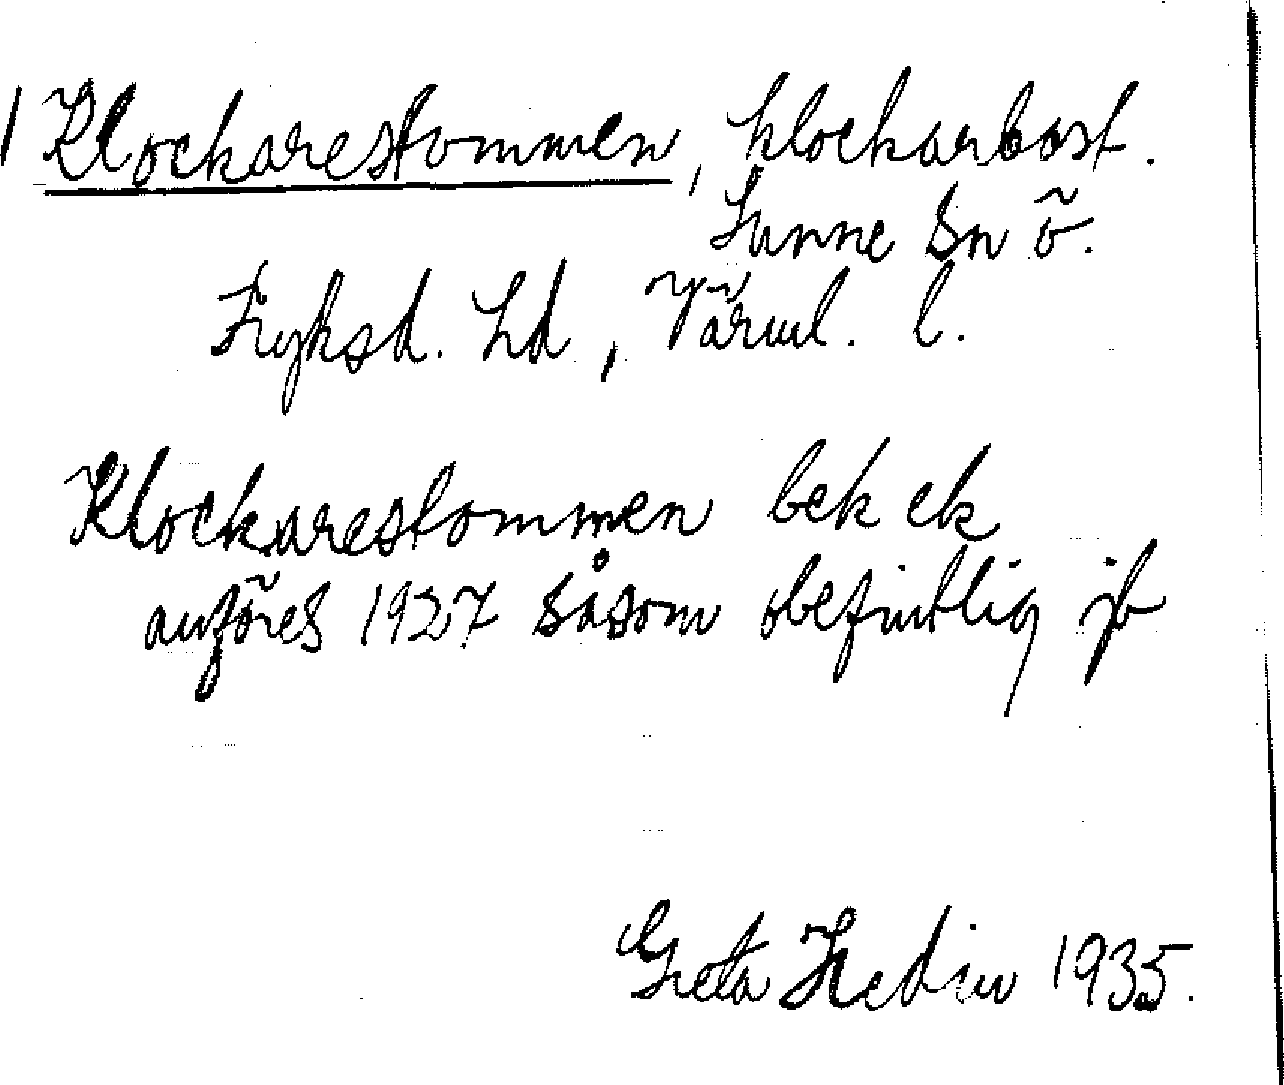 Klockarestommen, klockarbost.
Sunne Sn ö.
Fryksd. Hd, Värml. l.
Klockarestommen bek ek
anföres 1927 såsom obefintlig jb
Greta Hedin 1935.